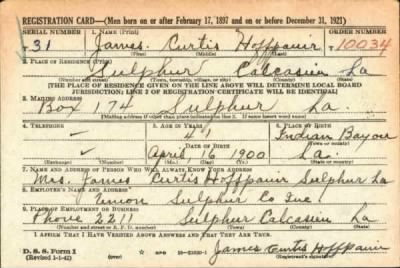 REGISTRATION CARD—(Men born on or after February 17, 1897 and on or before December 31, 1921)
SERIAL NUMBER 1. NAME (Print) ORDER NUMBER
T 31 James Curtis Hoffpauir T10034
(First) (Middle) (Last)
2. PLACE OF RESIDENCE (Print)
Sulphur Calcasieu La
(Number and street) (Town, township, village, or city) (County) (State)
[THE PLACE OF RESIDENCE GIVEN ON THE LINE ABOVE WILL DETERMINE LOCAL BOARD
JURISDICTION; LINE 2 OF REGISTRATION CERTIFICATE WILL BE IDENTICAL]
3. MAILING ADDRESS
Box 174 Sulphur La.
(Mailing address if other than place indicated on line 2. If same insert word same)
4. TELEPHONE 5. AGE IN YEARS 6. PLACE OF BIRTH
— 41 Indian Bayou
DATE OF BIRTH (Town or county)
— April 16 1900 La.
(Exchange) (Number) (Mo.) (Day) (Yr.) (State or country)
7. NAME AND ADDRESS OF PERSON WHO WILL ALWAYS KNOW YOUR ADDRESS
Mrs. James Curtis Hoffpauir Sulphur La
8. EMPLOYER'S NAME AND ADDRESS
Union Sulphur Co Inc.
9. PLACE OF EMPLOYMENT OR BUSINESS
Phone 2211 Sulphur Calcasieu La
(Number and street or R. F. D. number) (Town) (County) (State)
I AFFIRM THAT I HAVE VERIFIED ABOVE ANSWERS AND THAT THEY ARE TRUE.
D. S. S. Form 1
(Revised 1-1-42) (over) James Curtis Hoffpauir
(Registrant's signature)